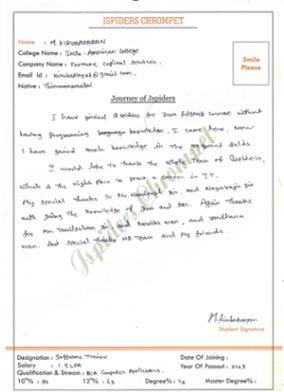 JSPIDERS CHROMPET
Name : M. KIRUBAHARAN
College Name : Indo-American College
Company Name : Fortune Capital Services.
Email Id : @gmail.com.
Native : Thiruvannamalai
Smile
Please
Journey of Jspiders
I have joined JSpiders for Java fullstack course without
having Programming language knowledge. I came here, Now
I have gained much knowledge in the required fields.
I would like to thank the whole Team of QSpiders,
which is the right place to start a career in IT.
My special Thanks To Mr. sir, and Nagarajan sir
with giving The knowledge of Java and SQL. Again Thanks
for Mr. Tamilselvan sir and mam, and Vandhana
mam. And special thanks HR Team and My friends.
Jspiders Chrompet
Student Signature
Designation : Software Trainee
Date Of Joining :
Salary : 1.5 LPA
Year Of Passout : 2023
Qualification & Stream : BCA Computer Applications
10th% : 86 12th% : 63 Degree% : 78 Master Degree% :